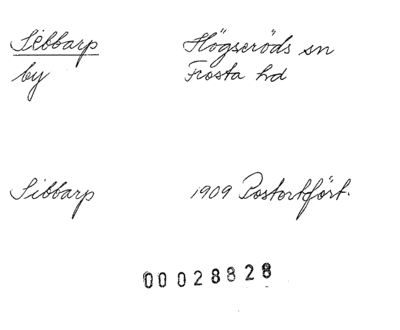 Sibbarp Högseröds sn
by Frosta hd
Sibbarp 1909 Postortfört.
00028828